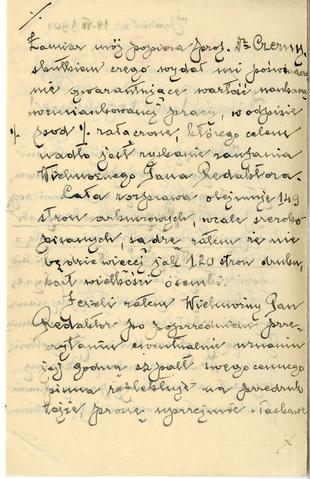 Zamiar mój popiera prof. Dr. Czerny,
skutkiem czego wydał mi poświadcze
nie gwarantujące wartość naukową
wzmiankowanej pracy, w odpisie
·/. pod ·/. załączone, którego celem
nadto jest zyskanie zaufania
Wielmożnego Pana Redaktora.
Cała rozprawa obejmuje 149
stron arkuszowych, wcale szeroko
pisanych, sądzę zatem że nie
będzie więcej jak 120 stron druku,
kart wielkości ósemki.
Jeżeli zatem Wielmożny Pan
Redaktor po poprzedniem prze-
czytaniu ewentualnie uznaniu
jej godną szpalt swego cennego
pisma reflektuje na przedruk
tejże, proszę uprzejmie o łaskawe